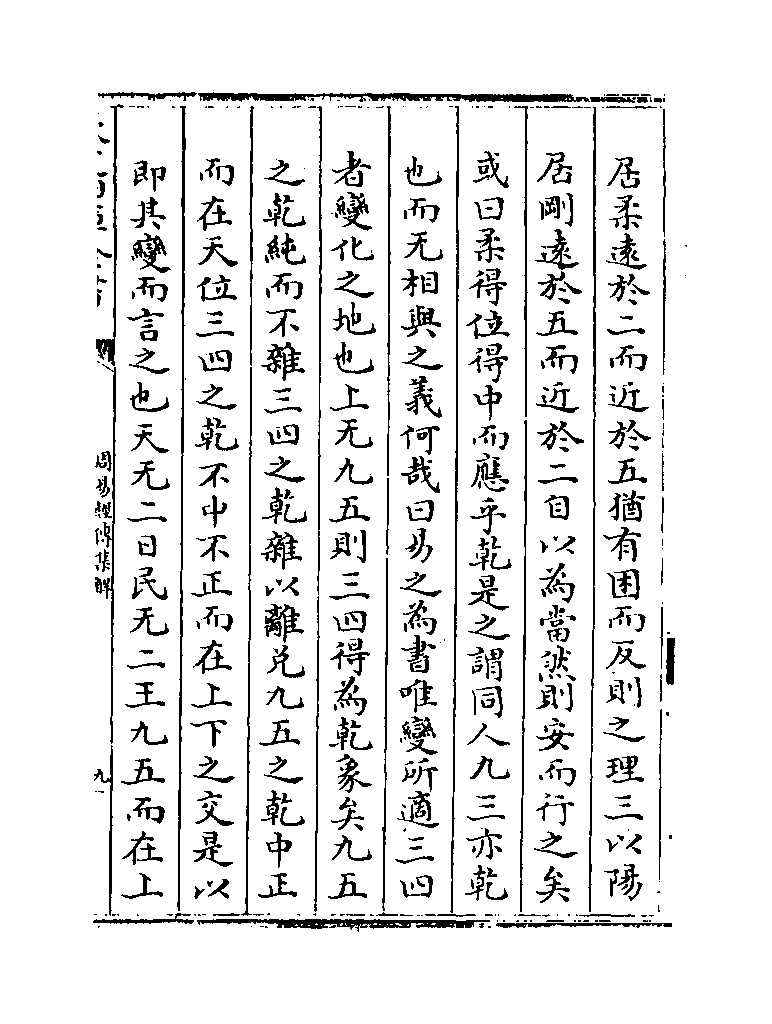 居柔遠於二而近於五猶有困而反則之理三以陽
居剛遠於五而近於二自以為當然則安而行之矣
或曰柔得位得中而應乎乾是之謂同人九三亦乾
也而无相與之義何哉曰易之為書唯變所適三四
者變化之地也上无九五則三四得為乾象矣九五
之乾純而不雜三四之乾雜以離兌九五之乾中正
而在天位三四之乾不中不正而在上下之交是以
即其變而言之也天无二日民无二王九五而在上
周易經傳集解
九